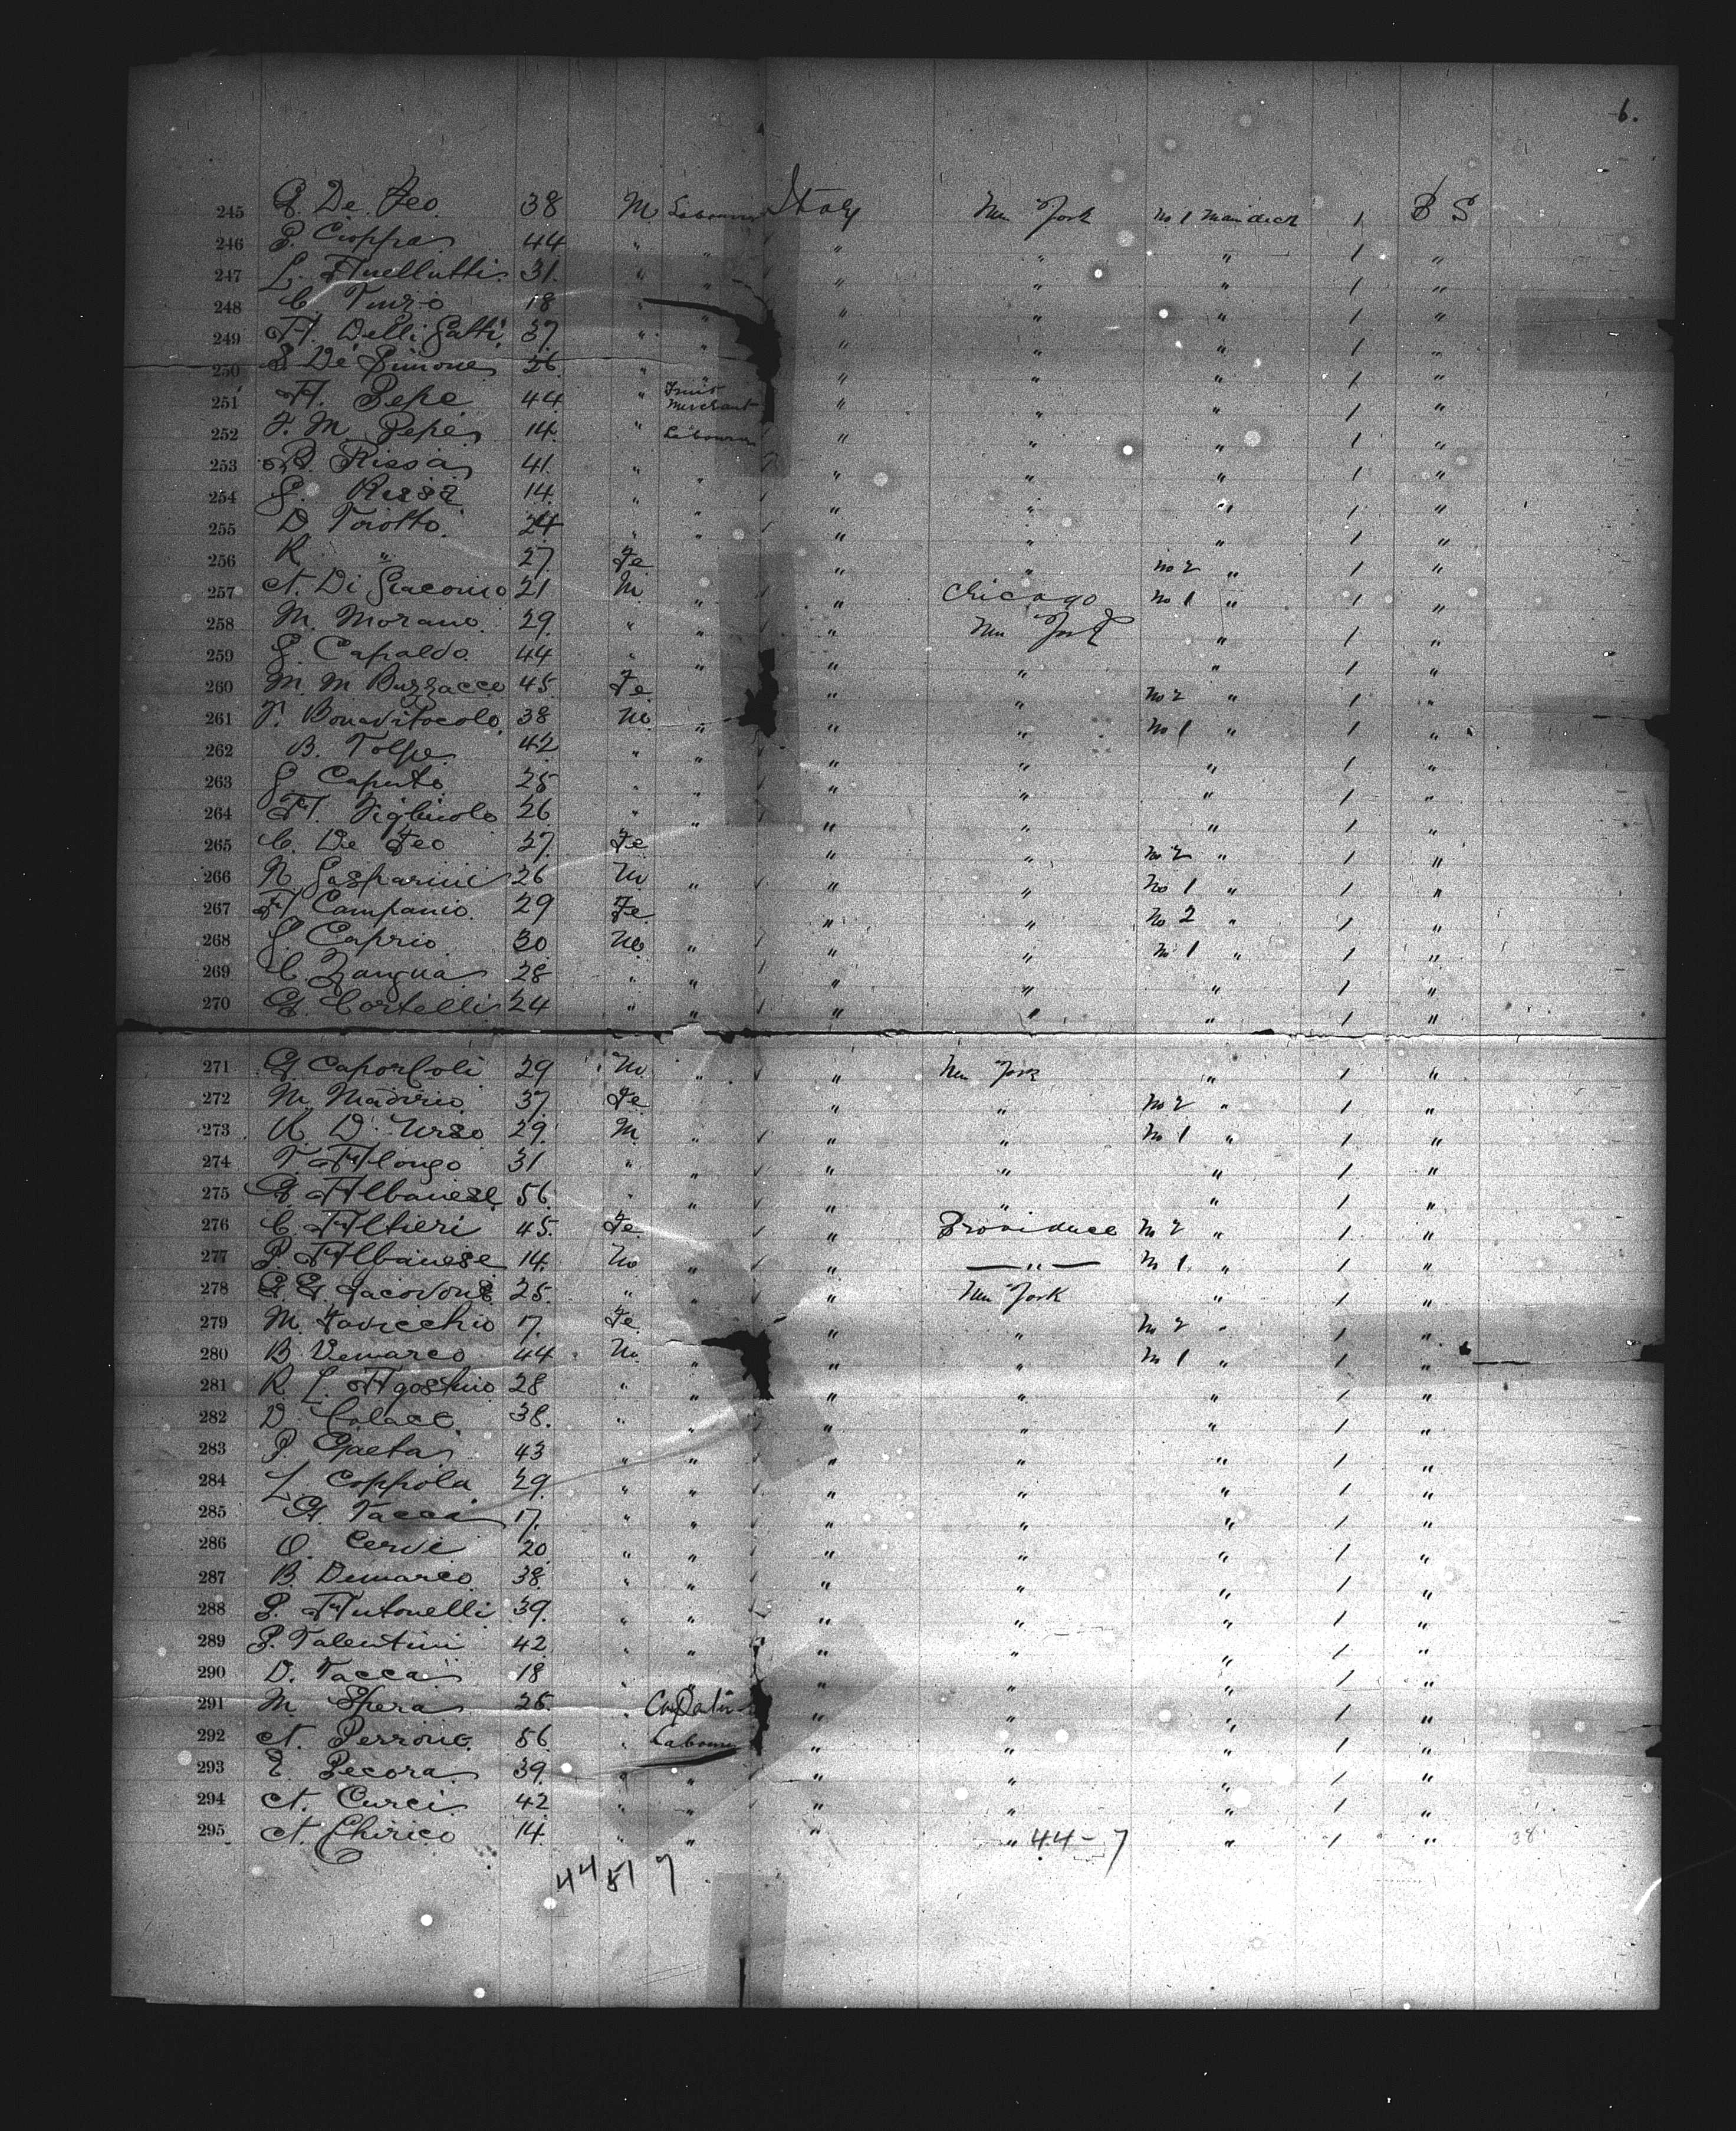 6.
245 G. De Feo 38 M Labourer Italy New York No 1 Main deck 1 B S
246 P. Cioppa 44 " " " " " 1 "
247 L. 31 " " " " " 1 "
248 C. 18 " " " " " 1 "
249 A. Delli Gatti 37 " " " " " 1 "
250 S. De Simone 26 " " " " " 1 "
251 A. Pepe 44 " Fruit Merchant " " " 1 "
252 F. M. Pepe 14 " Labourer " " " 1 "
253 B. Rissa 41 " " " " " 1 "
254 G. Rissa 14 " " " " " 1 "
255 D. 24 " " " " " 1 "
256 R. " 27 Fe " " No 2 " 1 "
257 A. Di Giacomo 21 M " " Chicago No 1 " 1 "
258 M. Morano 29 " " " New York " 1 "
259 G. Capaldo 44 " " " " " 1 "
260 M. M. Buzzacco 45 Fe " " No 2 " 1 "
261 F. Bonavitocolo 38 M " " " No 1 " 1 "
262 B. Tolpe 42 " " " " " 1 "
263 G. Caputo 25 " " " " " 1 "
264 A. 26 " " " " " 1 "
265 C. De Feo 27 Fe " " No 2 " 1 "
266 N. Gasparini 26 M " " " No 1 " 1 "
267 A. Campanio 29 Fe " " No 2 " 1 "
268 G. Caprio 30 M " " " No 1 " 1 "
269 C. Zangua 28 " " " " " 1 "
270 G. Cortelli 24 " " " " " 1 "
271 G. 29 M " " New York " 1 "
272 M. 37 Fe " " No 2 " 1 "
273 R. D'Urso 29 M " " " No 1 " 1 "
274 31 " " " " " 1 "
275 G. Albanese 56 " " " " " 1 "
276 C. Altieri 45 Fe " Providence No 2 " 1 "
277 P. Albanese 14 M " " " No 1 " 1 "
278 G. G. Iacovone 25 " " " New York " 1 "
279 M. Iavicchio 17 Fe " " No 2 " 1 "
280 B. Demarco 44 M " " " No 1 " 1 "
281 R. L. Agostino 28 " " " " " 1 "
282 D. Colace 38 " " " " " 1 "
283 P. Gaeta 43 " " " " " 1 "
284 L. Coppola 29 " " " " " 1 "
285 G. Vacca 17 " " " " " 1 "
286 O. Cervi 20 " " " " " 1 "
287 B. Demarco 38 " " " " " 1 "
288 P. Antonelli 39 " " " " " 1 "
289 P. Valentini 42 " " " " " 1 "
290 D. Vacca 18 " " " " " 1 "
291 M. Spera 26 " " " " 1 "
292 A. Perrone 56 " Labourer " " " 1 "
293 E. Pecora 39 " " " " " 1 "
294 A. Curci 42 " " " " " 1 "
295 A. Chirico 14 " " " " 44-7 " 1 " 38
44 51 7